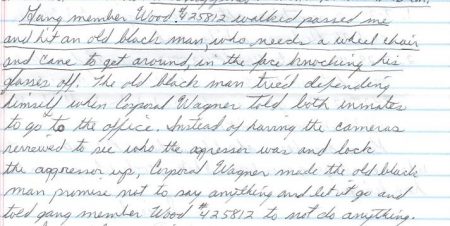 Gang member Wood #425812 walkid passed me
and hit an old black man, who needs a wheel chair
and cane to get around, in the face knocking his
glasses off. The old black man tried depending
himself when Corporal Wagner told both inmates
to go to the office. Instead of having the cameras
reviewed to see who the aggressor was and lock
the aggressor up, Corporal Wagner made the old black
man promise not to say anything and let it go and
told gang member Wood #425812 to not do anything.